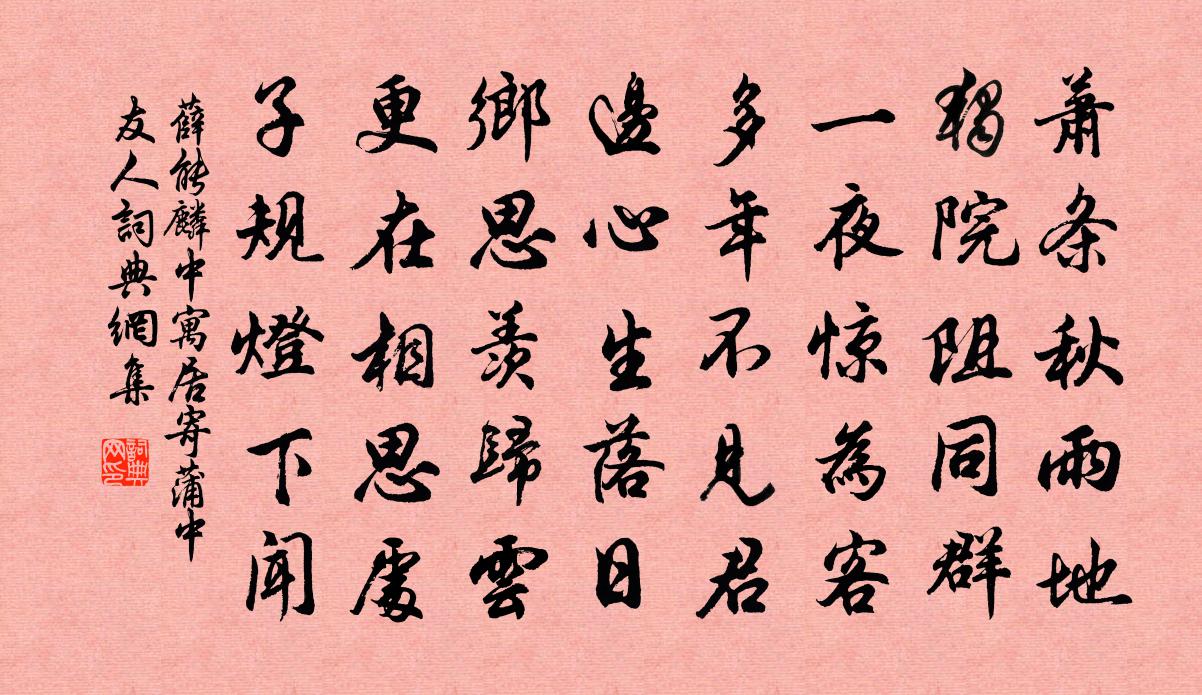 蕭条秋雨地
獨院阻同群
一夜惊為客
多年不見君
邊心生落日
鄉思羨歸雲
更在相思處
子規燈下闻
薛能麟中寓居寄蒲中
友人詞典網集
詞典
网印